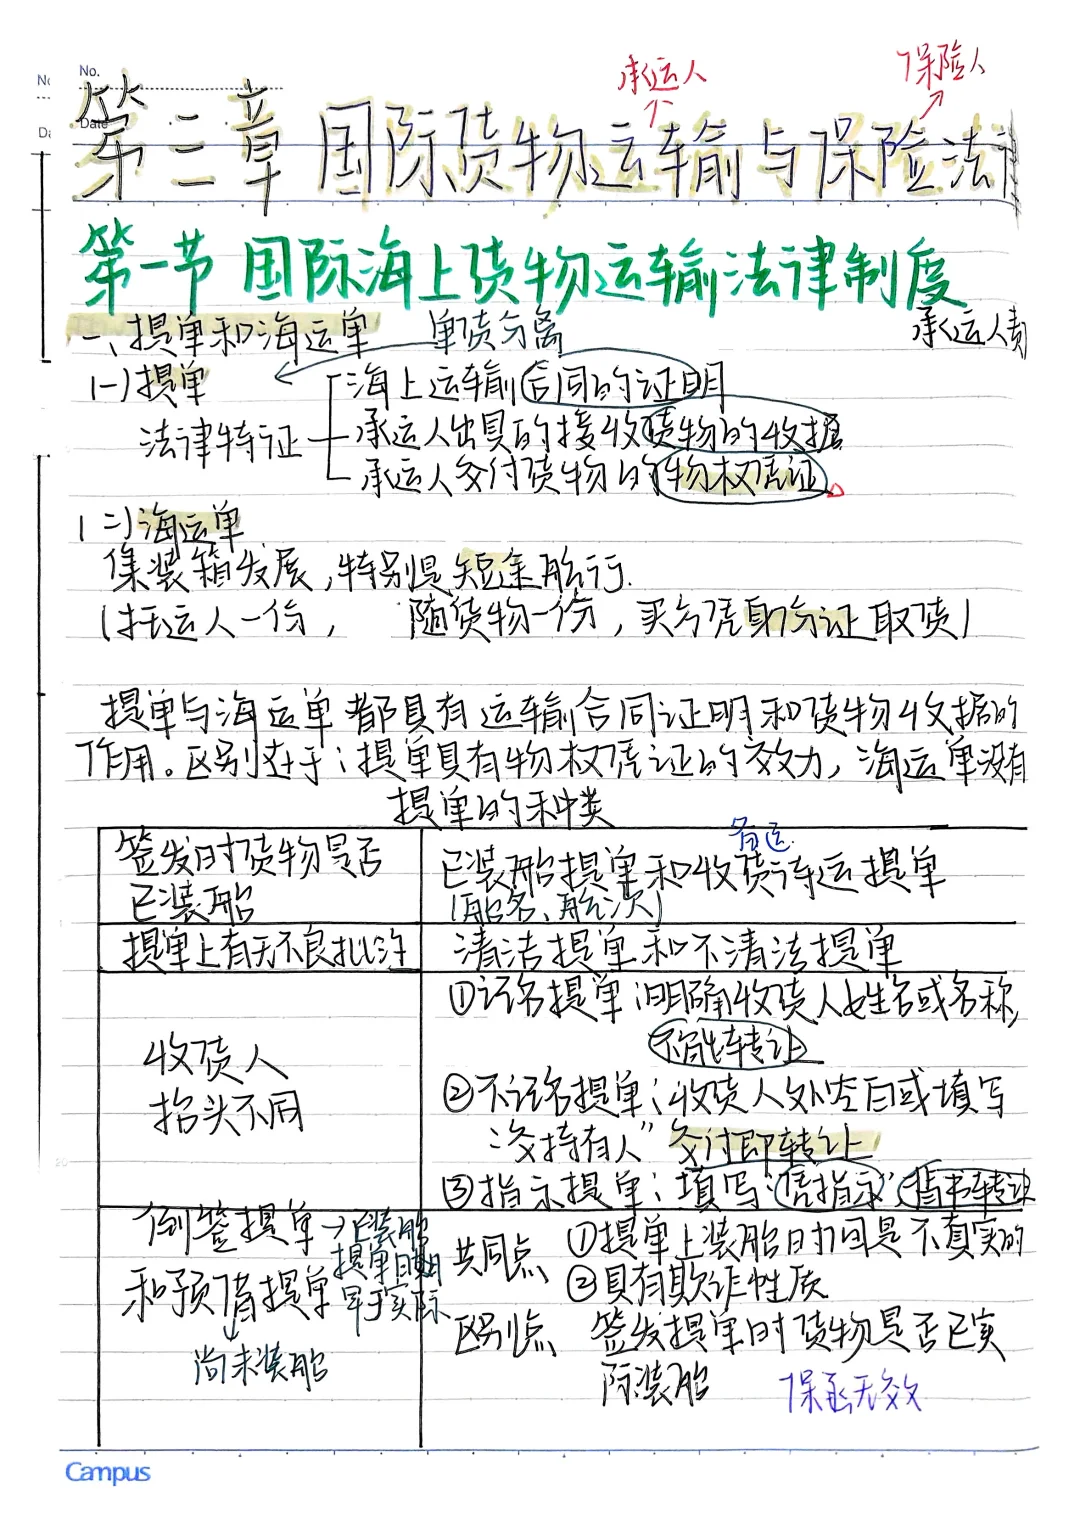 No.
Date
承运人
保险人
第二章 国际货物运输与保险法
第一节 国际海上货物运输法律制度
一、提单和海运单 单货分离
承运人责
(一)提单
海上运输合同的证明
法律特征 承运人出具的接收货物的收据
承运人交付货物的物权凭证
(二)海运单
集装箱发展,特别是短途船行.
(托运人一份, 随货物一份,买方凭身份证取货)
提单与海运单都具有运输合同证明和货物收据的
作用。区别在于:提单具有物权凭证的效力,海运单没有
提单的种类
签发时货物是否
已装船
备运
已装船提单和收货待运提单
(船名、航次)
提单上有无不良批注
清洁提单和不清洁提单
收货人
抬头不同
①记名提单:明确收货人姓名或名称,
不能转让
②不记名提单:收货人处空白或填写
"交持有人" 交付即转让
③指示提单:填写"凭指示"背书转让
倒签提单→已装船
提单日期
早于实际
和预借提单
尚未装船
共同点 ①提单上装船时间是不真实的
②具有欺诈性质
区别点 签发提单时货物是否已实
际装船
保函无效
Campus